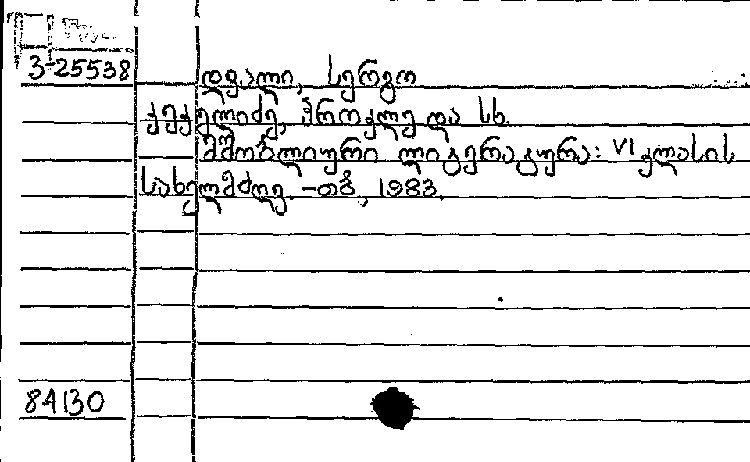 3-25538
ღვალი, სერგო
კეკელიძე, ჰროკლე და სხ.
მშობლიური ლიტერატურა: VI კლასის
სახელმძღვ. -თბ., 1983.
84130